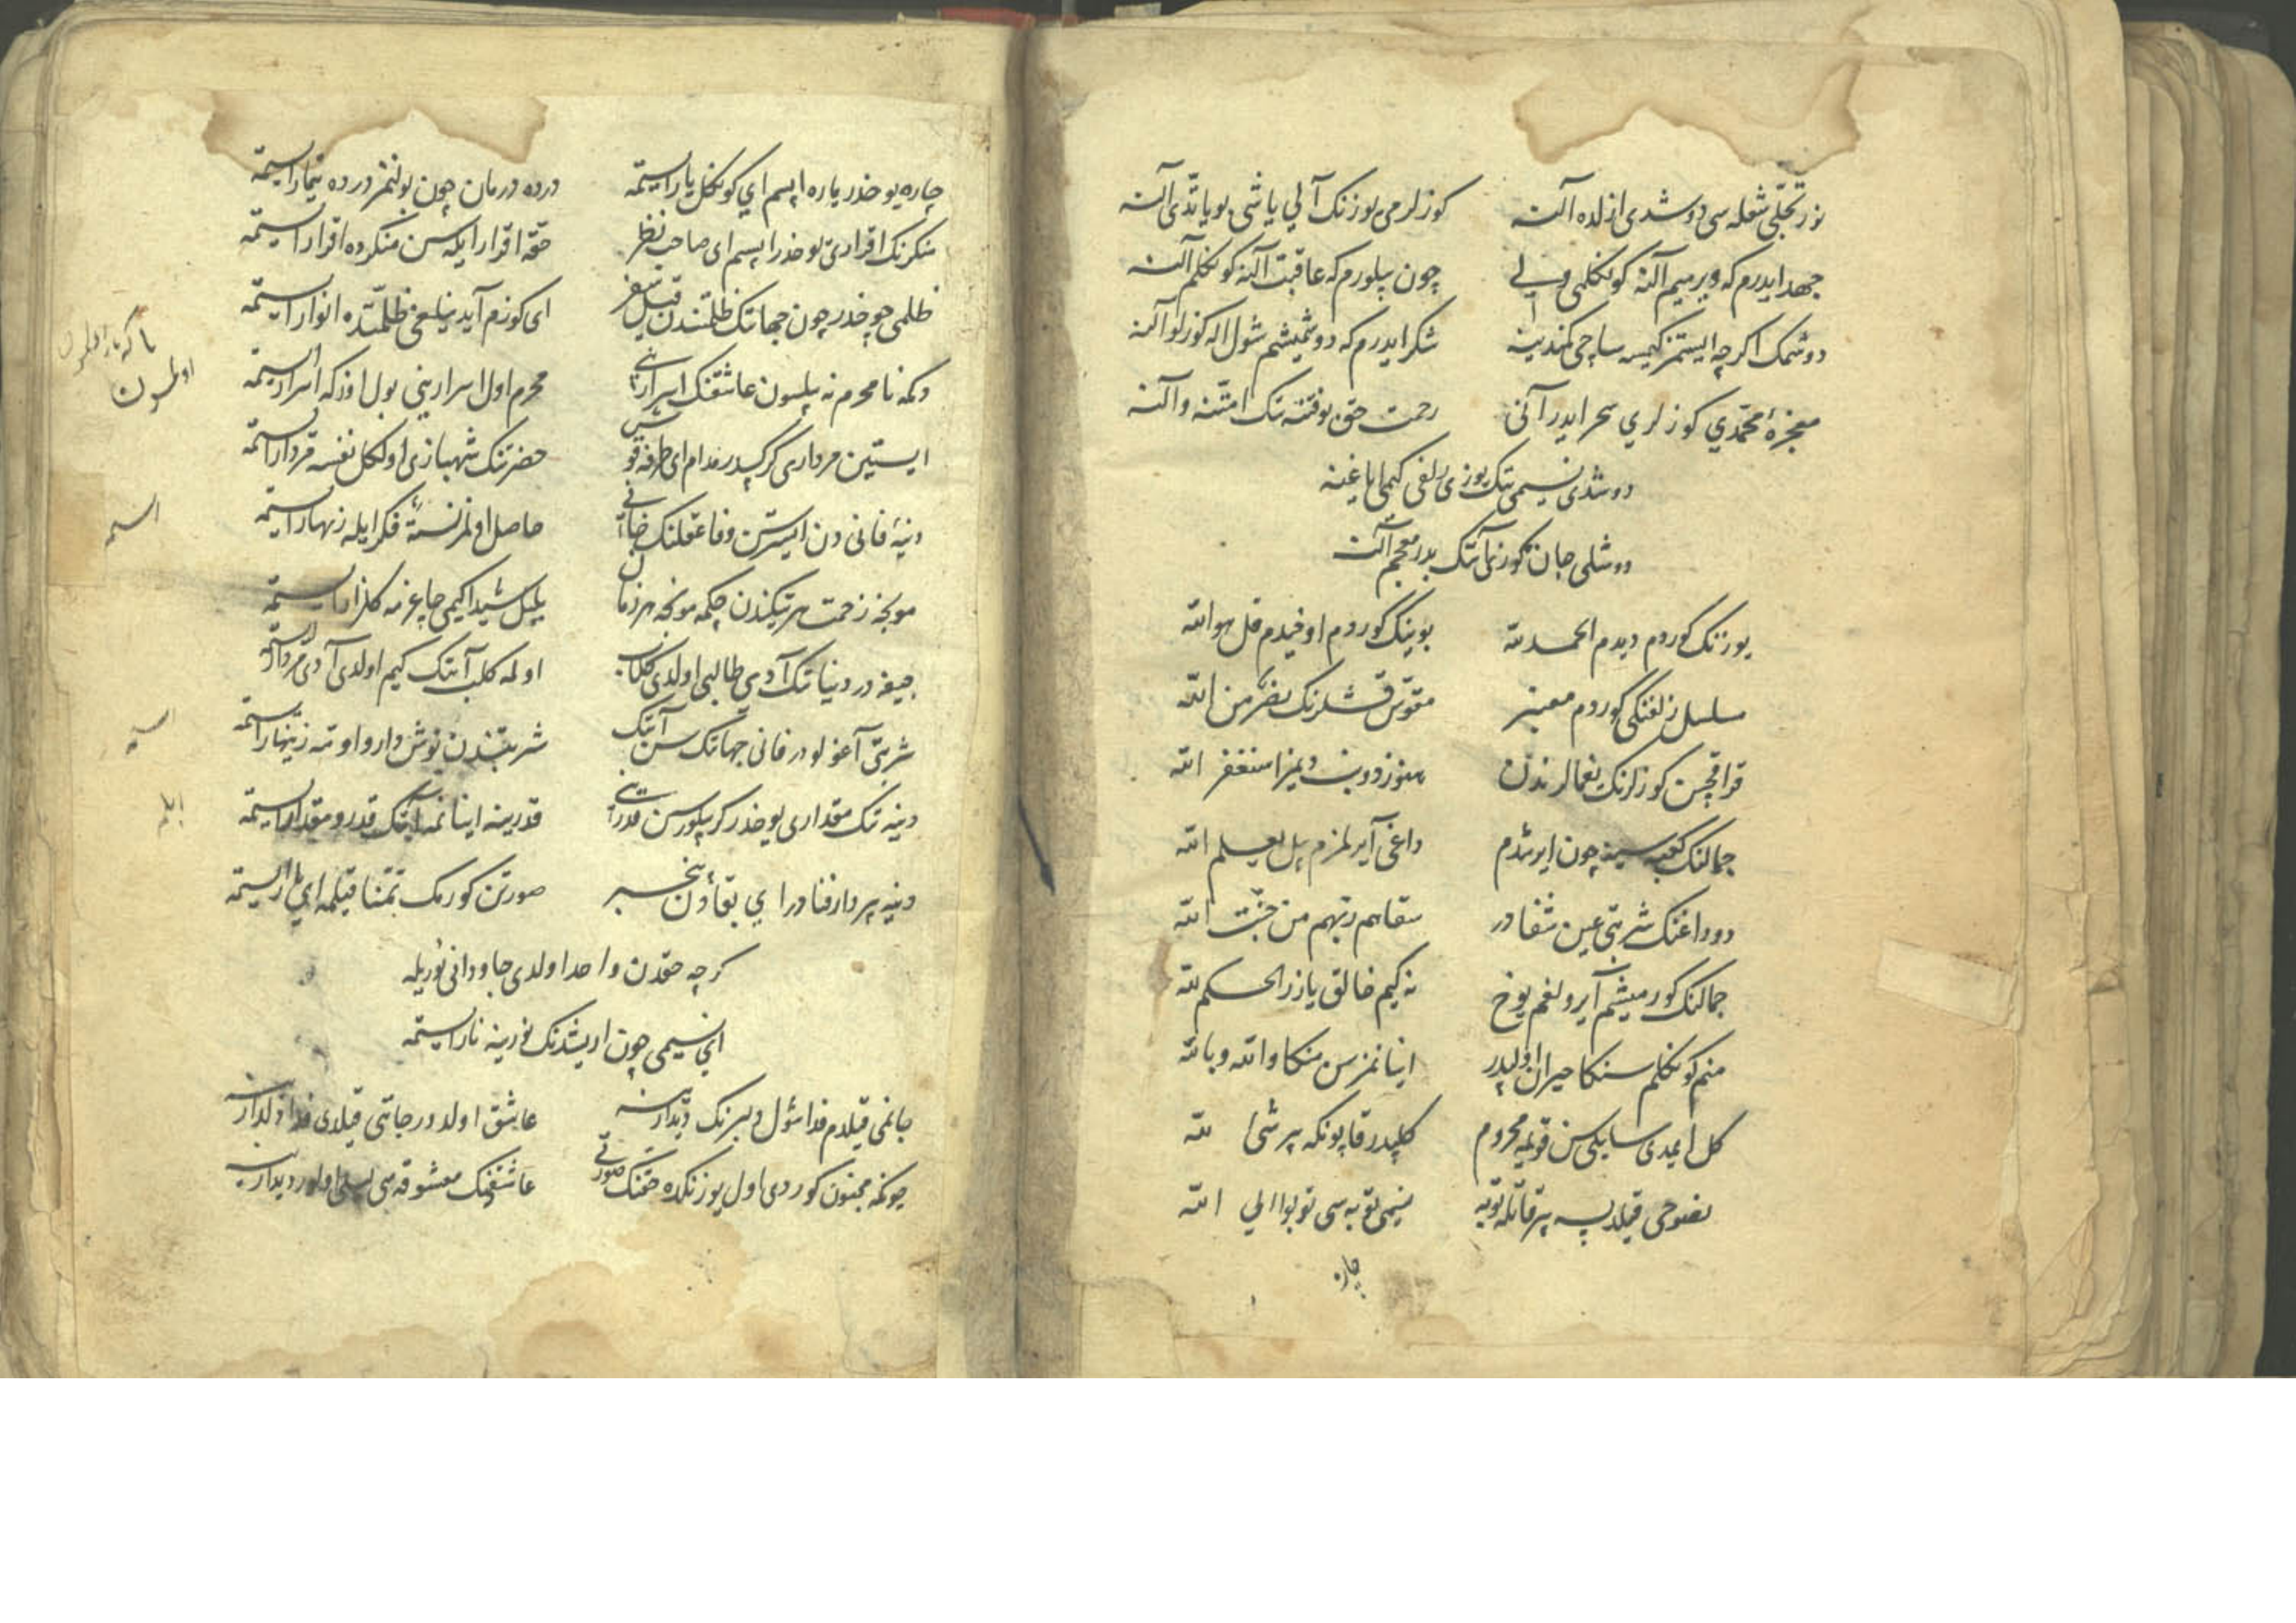 نور تجلّی شعله سی دوشدی ازلده آلنه کوزلرمی یوزنک آلی یاشی بویاتدی آلنه
جهد ایدرم که ویرمیم آلنه کونکلمی ولی چون بیلورم که عاقبت آلنه کونکلم آلنه
دوشمک اکرچه ایستمز کیمسه ساچی کمندینه شکر ایدرم که دوشمیشم شول اله کوزلو آلنه
معجزهٔ محمّدی کوزلری سحر ایدر آنی رحمت حق بو فتنه نک امتنه و آلنه
دوشدی نسیمی تک یوزی زلفی کیمی ایاغنه
دوشلی جان کوزی آنک بدر معجم آلنه
یوزنک کوردم دیدم الحمد لله بوینک کوردم اوخیدم قل هو الله
مسلسل زلفنکی کوردم معنبر مقوّس قشلرنک نصر من الله
قراقچی کوزلرنک یغمالرندن هنوز دوینمز استغفر الله
جمالنک کعبه سینه چون ایرشدم داغی آیرلمزم بل یعلم الله
دوداغنک شربتی عین شفادر سقاهم ربّهم من جنّت الله
جمالنک کورمیشم آیرو غمم یوخ نه کیم خالق یازر الحکم لله
منم کونکلم سنکا حیران اولپدر اینانمزسن منکا والله و بالله
کل ایمدی سایلی سن قویمه محروم کلپدر قاپونکه بیر شیء لله
نصوحی قیلدیسه بیر قاتله توبه نسیمی توبه سی توبوا الی الله
چاره
چاره یوخدر یاره ایسم ای کونکل یار ایستمه درده درمان چون بولنمز درده تیمار ایستمه
منکرنک اقراری یوخدر ایسم ای صاحب نظر حقه اقرار ایله سن منکرده اقرار ایستمه
ظلمی چوخدر چون جهانک ظلمتندن قیل سفر ای کوزم آیدینلغی ظلمتده انوار ایستمه
دکمه نامحرم نه بیلسون عاشقنک اسرارنی محرم اول اسرارینی بول اوزکه اسرار ایستمه
ایستین مرداری کرکسدر مدام ای طرفه قوش حضرتنک شهبازی اولکل نفسه مردار ایستمه
دنیهٔ فانی دن ایسترسن وفا عقلنک خانی حاصل اولمز نسنه فکر ایله زنهار ایستمه
مونجه زحمت هر تیکندن چکمه مونجه هر زمان بلبل شیدا کیمی چاغرمه کلزار ایستمه
جیفه در دنیانک آدی طالبی اولدی کلاب اولمه کلب آنک کیم اولدی آدی مردار ایستمه
شربتی آغولودر فانی جهانک سن آنک شربتندن نوش دارو اومه زینهار ایستمه
دنیه نک مقداری یوخدر کر بیلورسن قدرنی قدرینه اینانمه آنک قدر و مقدار ایستمه
دنیه بیر دار فنادر ای بقادن بیخبر صورتن کورمک تمنّا قیلمه ای یار ایستمه
کرچه حقدن واحد اولدی جاودانی نوریله
ای نسیمی چون اریشدنک نورینه نار ایستمه
جانمی قیلدم فدا شول دلبرنک دیدارینه عاشق اولدور جانی قیلدی فدا دلدارینه
چونکه مجنون کوردی اول یوزنکده حقنک صورتی عاشقنک معشوقه سی لیلی اولور دیدارینه
اولمسون